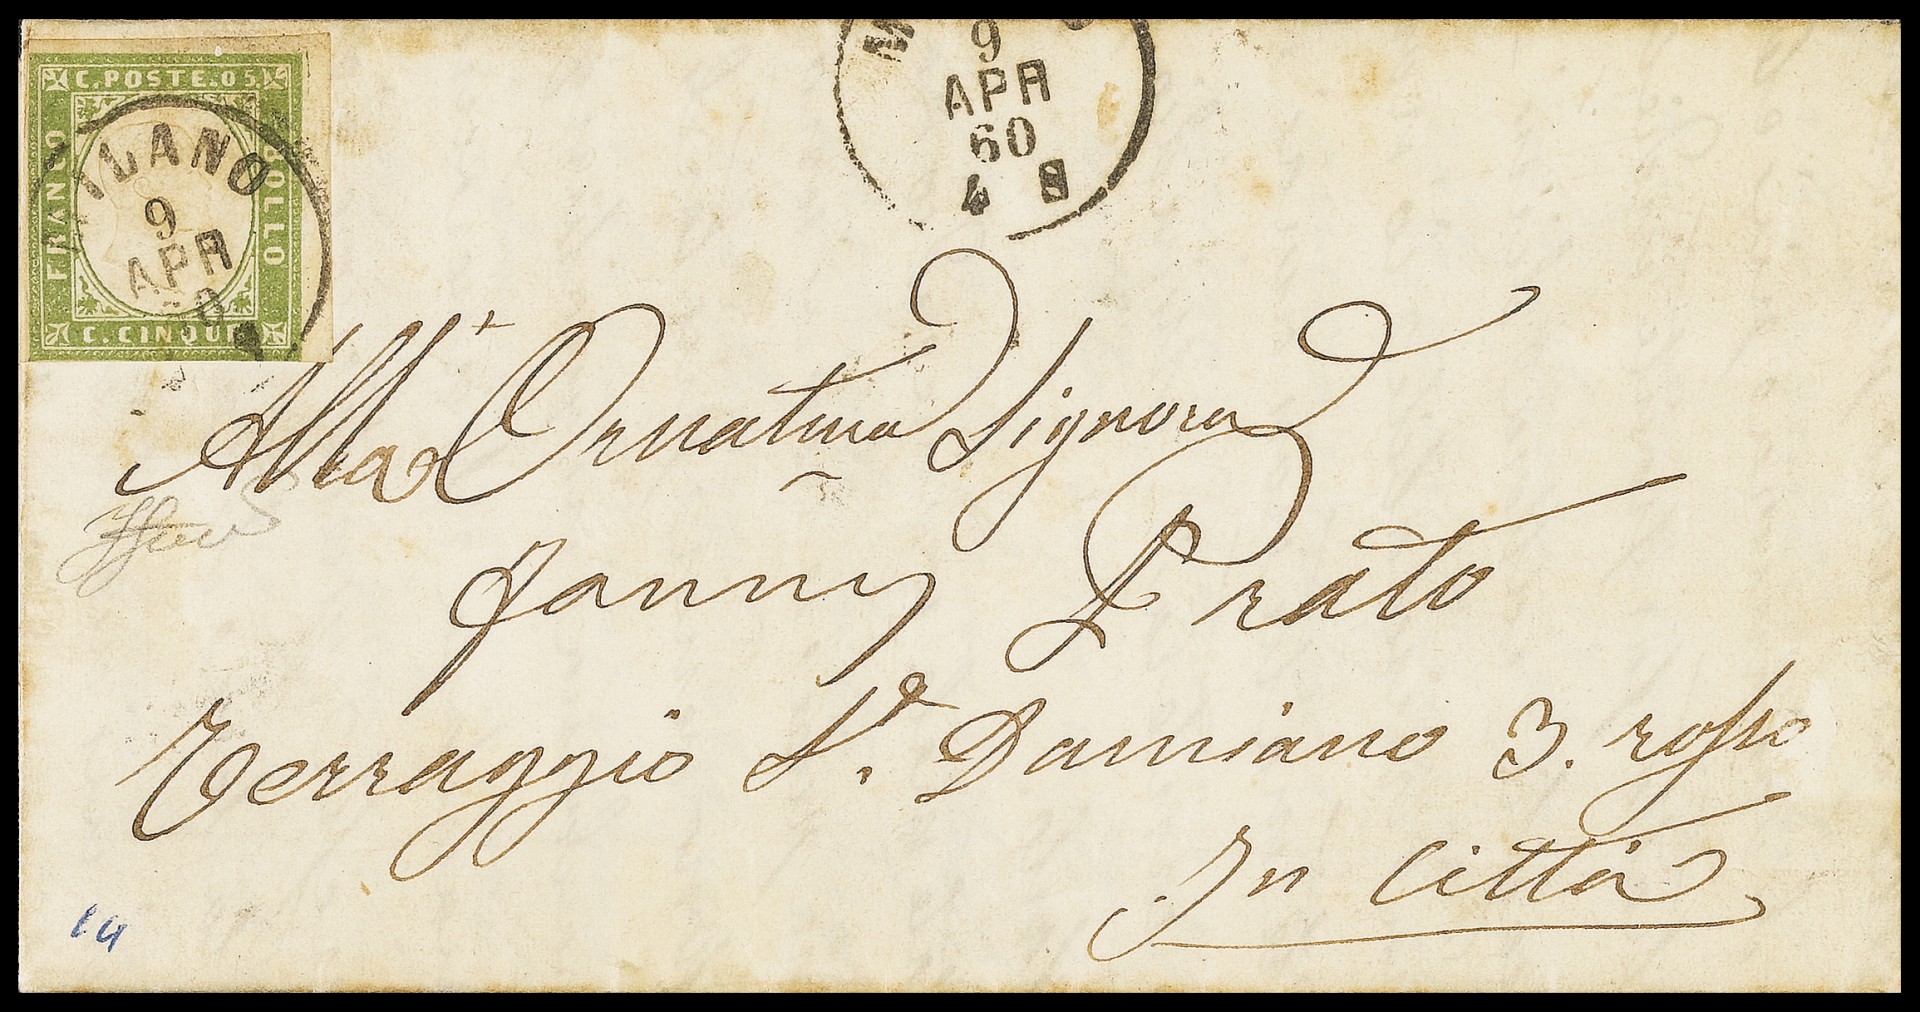 C. POSTE. 05
FRANCO
BOLLO
C. CINQUE
MILANO
9
APR
60
M
9
APR
60
4 S
All' Ornatma Signora
Fanny Prato
Terraggio S. Damiano 3. rosso
In Città
14